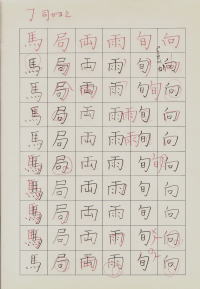 馬 局 両 雨 旬 向
馬 局 両 雨 旬 向
馬 局 両 雨 旬 向
馬 局 両 雨 旬 向
馬 局 両 雨 旬 向
馬 局 両 雨 旬 向
馬 局 両 雨 旬 向
馬 局 両 雨 旬 向
馬 局 両 雨 旬 向
馬 局 両 雨 旬 向